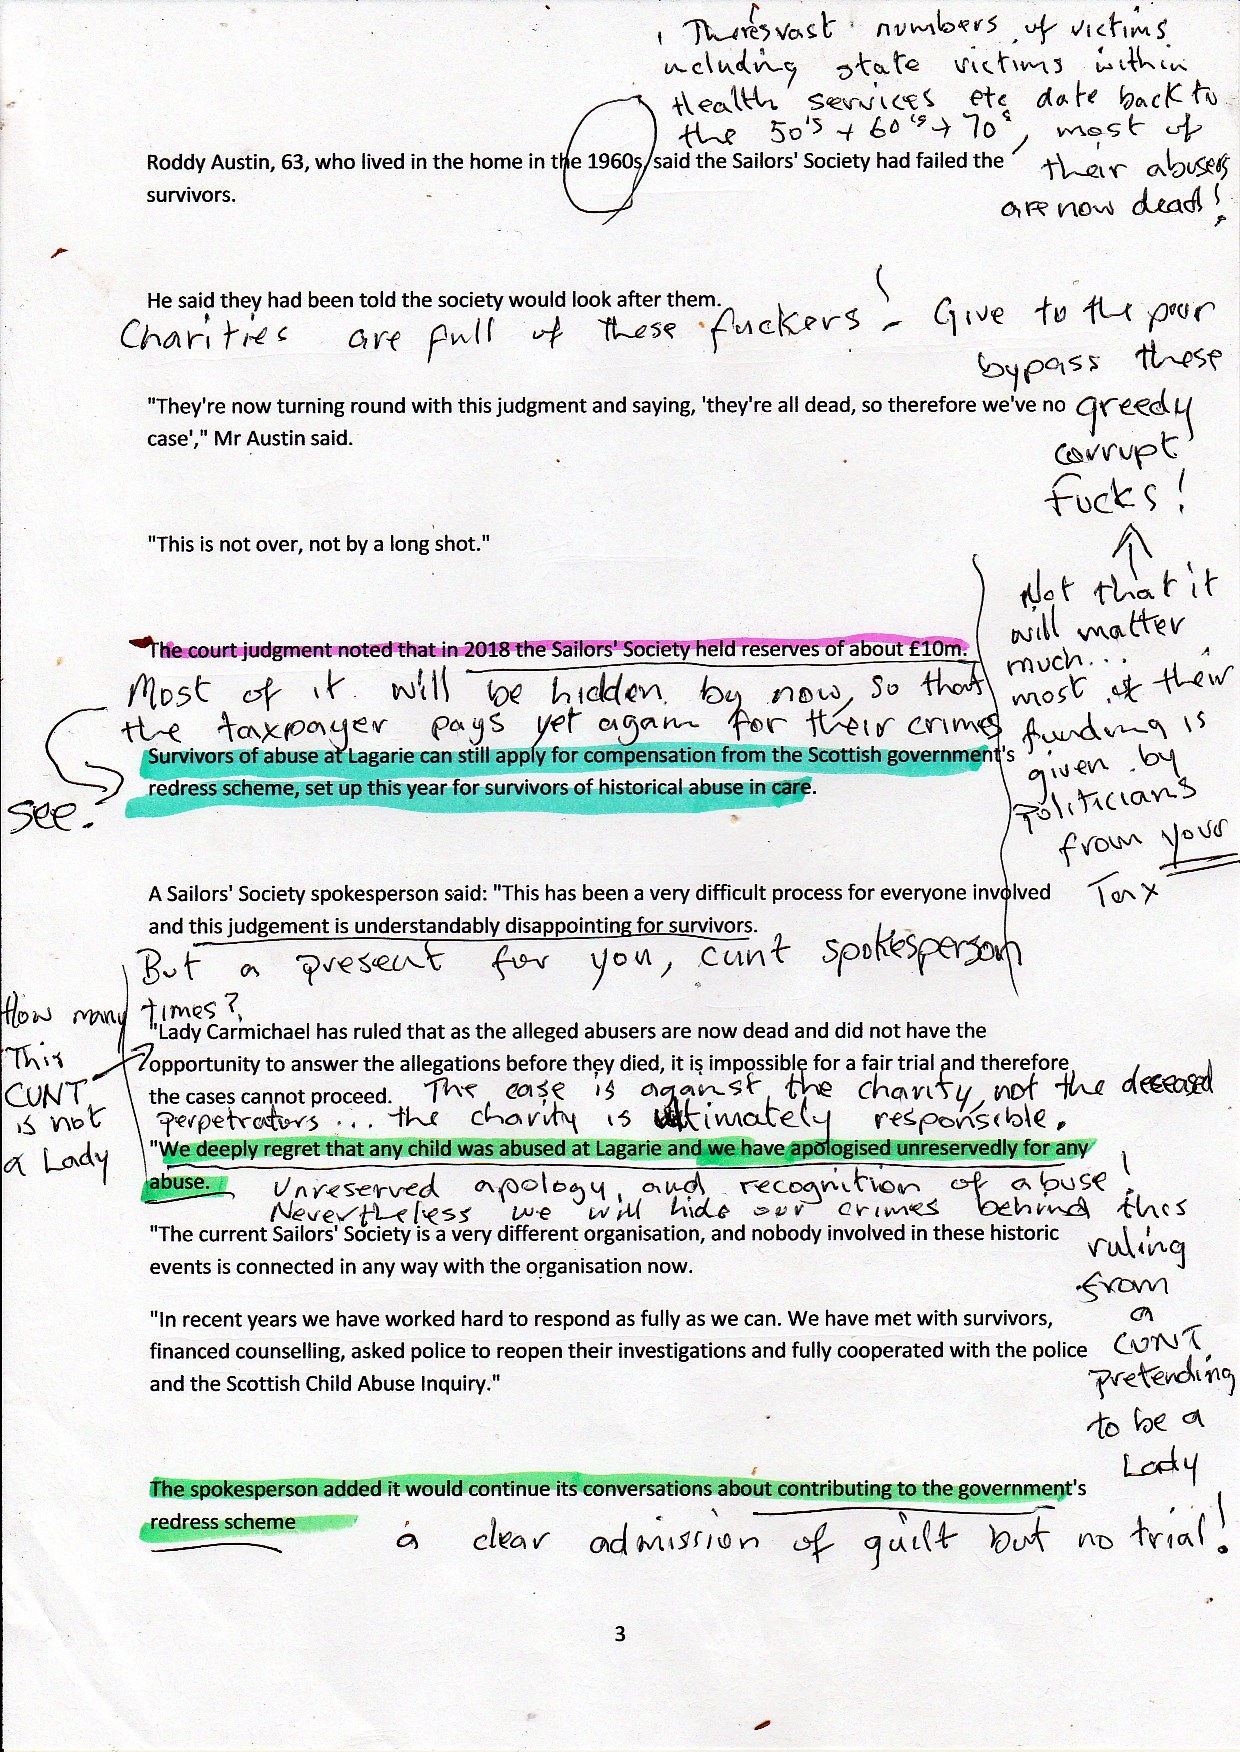 Theres vast numbers of victims
including state victims within
Health services etc date back to
the 50's + 60's + 70s, most of
their abusers
are now dead!
Roddy Austin, 63, who lived in the home in the 1960s, said the Sailors' Society had failed the
survivors.
He said they had been told the society would look after them.
Charities are full of these fuckers! - Give to the poor
bypass these
greedy
corrupt
Fucks!
"They're now turning round with this judgment and saying, 'they're all dead, so therefore we've no
case'," Mr Austin said.
"This is not over, not by a long shot."
Not that it
will matter
much...
most of their
funding is
given by
Politicians
from your
Tax
The court judgment noted that in 2018 the Sailors' Society held reserves of about £10m.
Most of it will be hidden by now, so that
the taxpayer pays yet again for their crimes
see.
Survivors of abuse at Lagarie can still apply for compensation from the Scottish government's
redress scheme, set up this year for survivors of historical abuse in care.
A Sailors' Society spokesperson said: "This has been a very difficult process for everyone involved
and this judgement is understandably disappointing for survivors.
But a present for you, cunt spokesperson
How many times?
This
CUNT
is not
a Lady
"Lady Carmichael has ruled that as the alleged abusers are now dead and did not have the
opportunity to answer the allegations before they died, it is impossible for a fair trial and therefore
the cases cannot proceed.
The case is against the charity, not the deceased
perpetrators... the charity is ultimately responsible.
"We deeply regret that any child was abused at Lagarie and we have apologised unreservedly for any
abuse.
Unreserved apology, and recognition of abuse!
Nevertheless we will hide our crimes behind this
ruling
from
a
CUNT
pretending
to be a
Lady
"The current Sailors' Society is a very different organisation, and nobody involved in these historic
events is connected in any way with the organisation now.
"In recent years we have worked hard to respond as fully as we can. We have met with survivors,
financed counselling, asked police to reopen their investigations and fully cooperated with the police
and the Scottish Child Abuse Inquiry."
The spokesperson added it would continue its conversations about contributing to the government's
redress scheme
a clear admission of guilt but no trial!
3